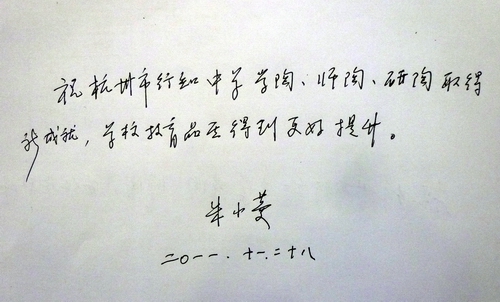 祝杭州市行知中学学陶、师陶、研陶取得
新成就，学校教育品质得到更好提升。
朱小蔓
二〇一一.十一.二十八